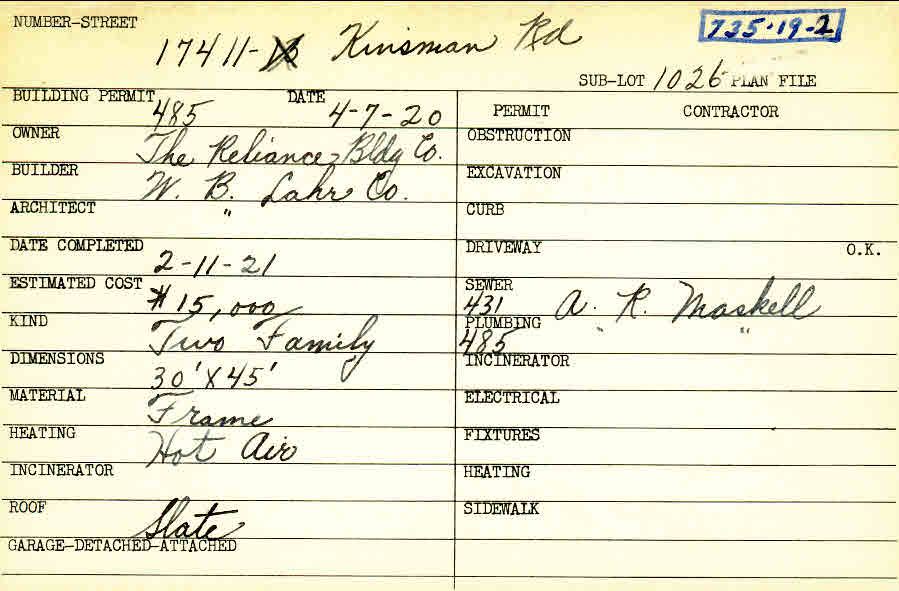 NUMBER-STREET 735-19-2
17411-13 Kinsman Rd
SUB-LOT 1026 PLAN FILE
BUILDING PERMIT 485 DATE 4-7-20
PERMIT CONTRACTOR
OWNER The Reliance Bldg Co.
OBSTRUCTION
BUILDER W. B. Lahr Co.
EXCAVATION
ARCHITECT "
CURB
DATE COMPLETED 2-11-21
DRIVEWAY O.K.
ESTIMATED COST #15,000
SEWER 431 A. R. Maskell
KIND Two Family
PLUMBING 485 " "
DIMENSIONS 30' X 45'
INCINERATOR
MATERIAL Frame
ELECTRICAL
HEATING Hot Air
FIXTURES
INCINERATOR
HEATING
ROOF Slate
SIDEWALK
GARAGE-DETACHED-ATTACHED